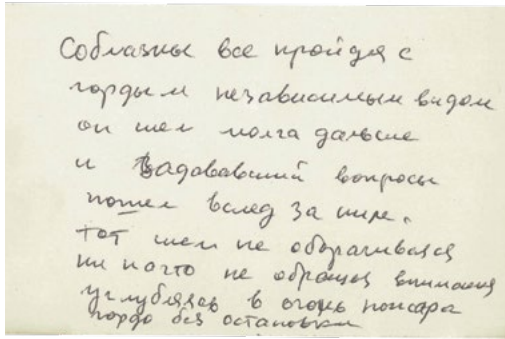 Соблазны все пройдя с
гордым независимым видом
он шел молча дальше
и задававший вопросы
пошел вслед за
тот шел не оборачиваясь
ни на что не обращая внимания
углубляясь в огонь пожара
гордо без остановки